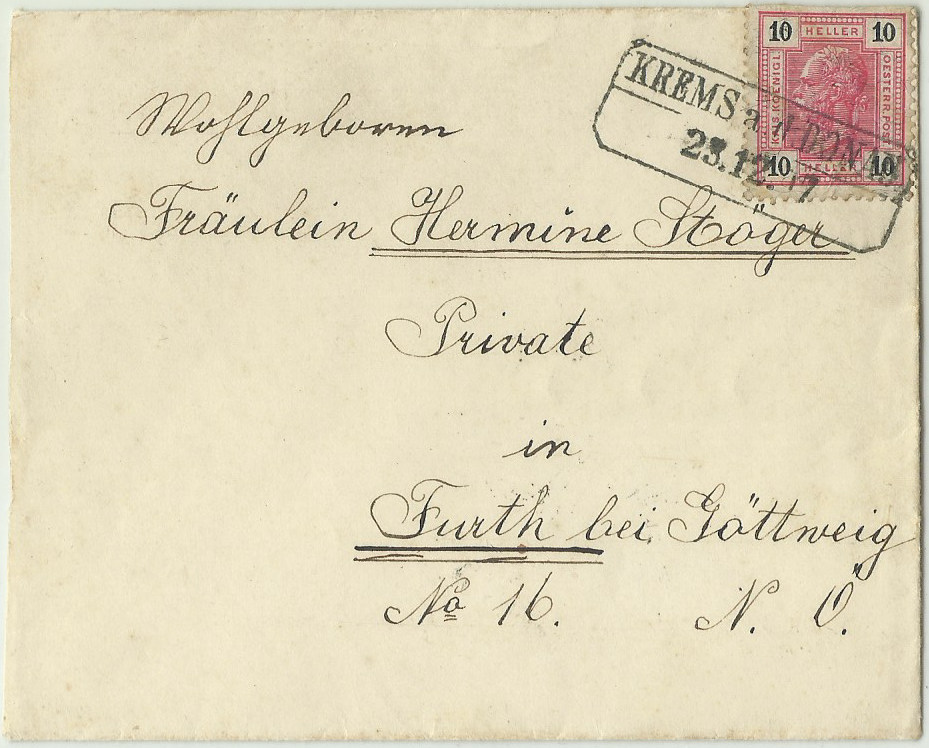 10 HELLER 10
KAIS. KOENIGL.
OESTERR. POST
10 HELLER 10
KREMS a. d. DONAU
23.12. 7
Wohlgeboren
Fräulein Hermine Stöger
Private
in
Furth bei Göttweig
No 16. N. Ö.